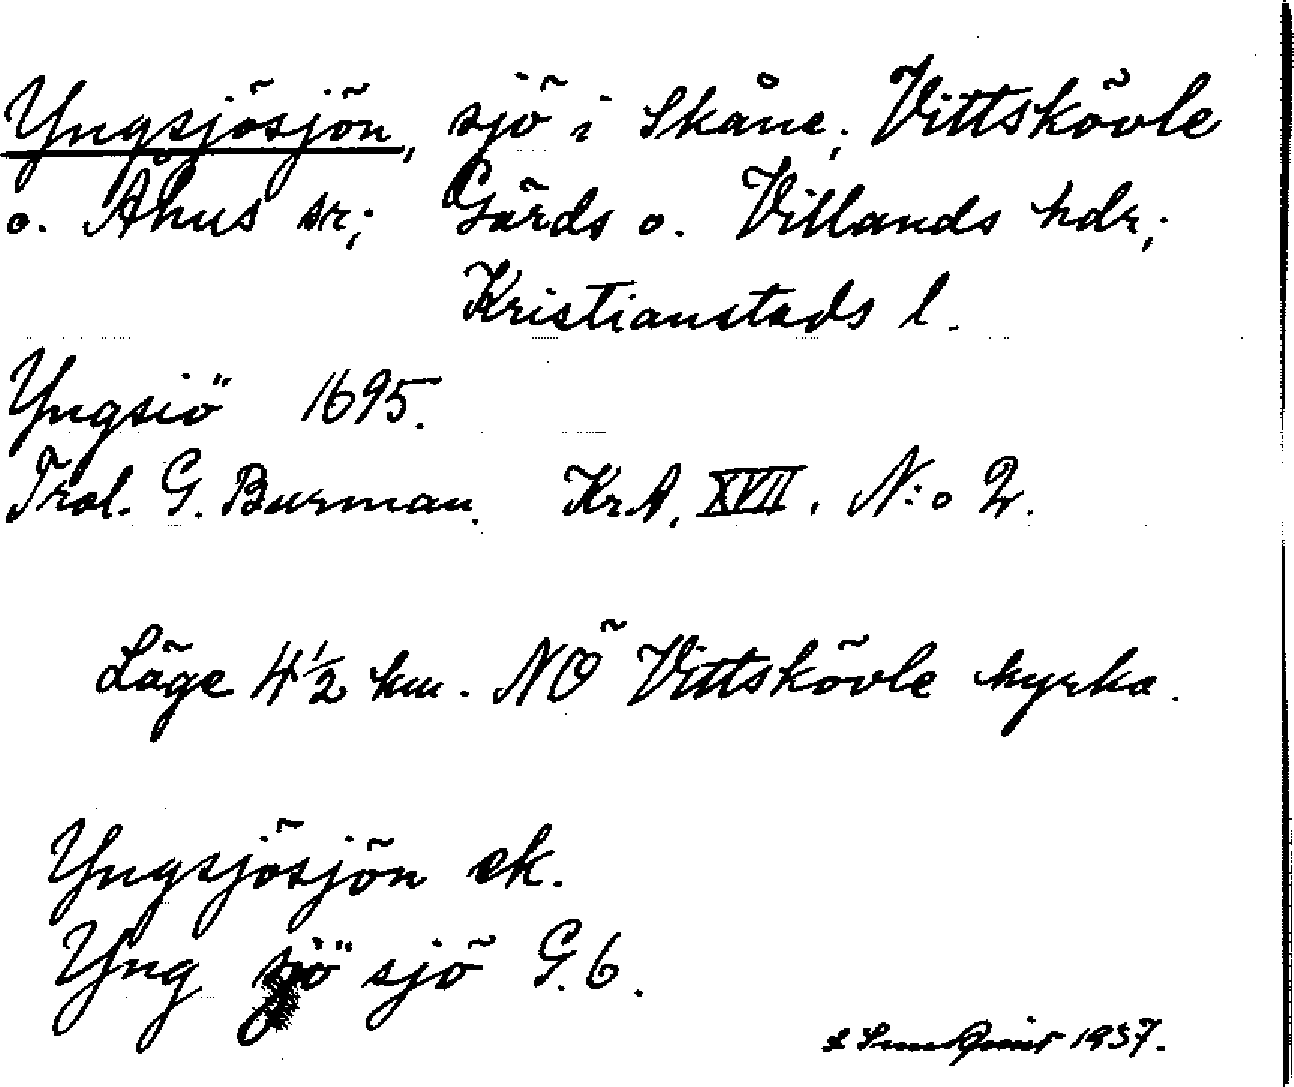 Yngsjösjön, sjö i Skåne; Vittskövle
o. Åhus sr; Gärds o. Villands hdr;
Kristianstads l.
Yngsiö 1695.
Trol. G. Burman. KrA. XVII. N:o 2.
Läge 4 1/2 km. NÖ Vittskövle kyrka.
Yngsjösjön ek.
Yng sjö sjö G.6.
1937.